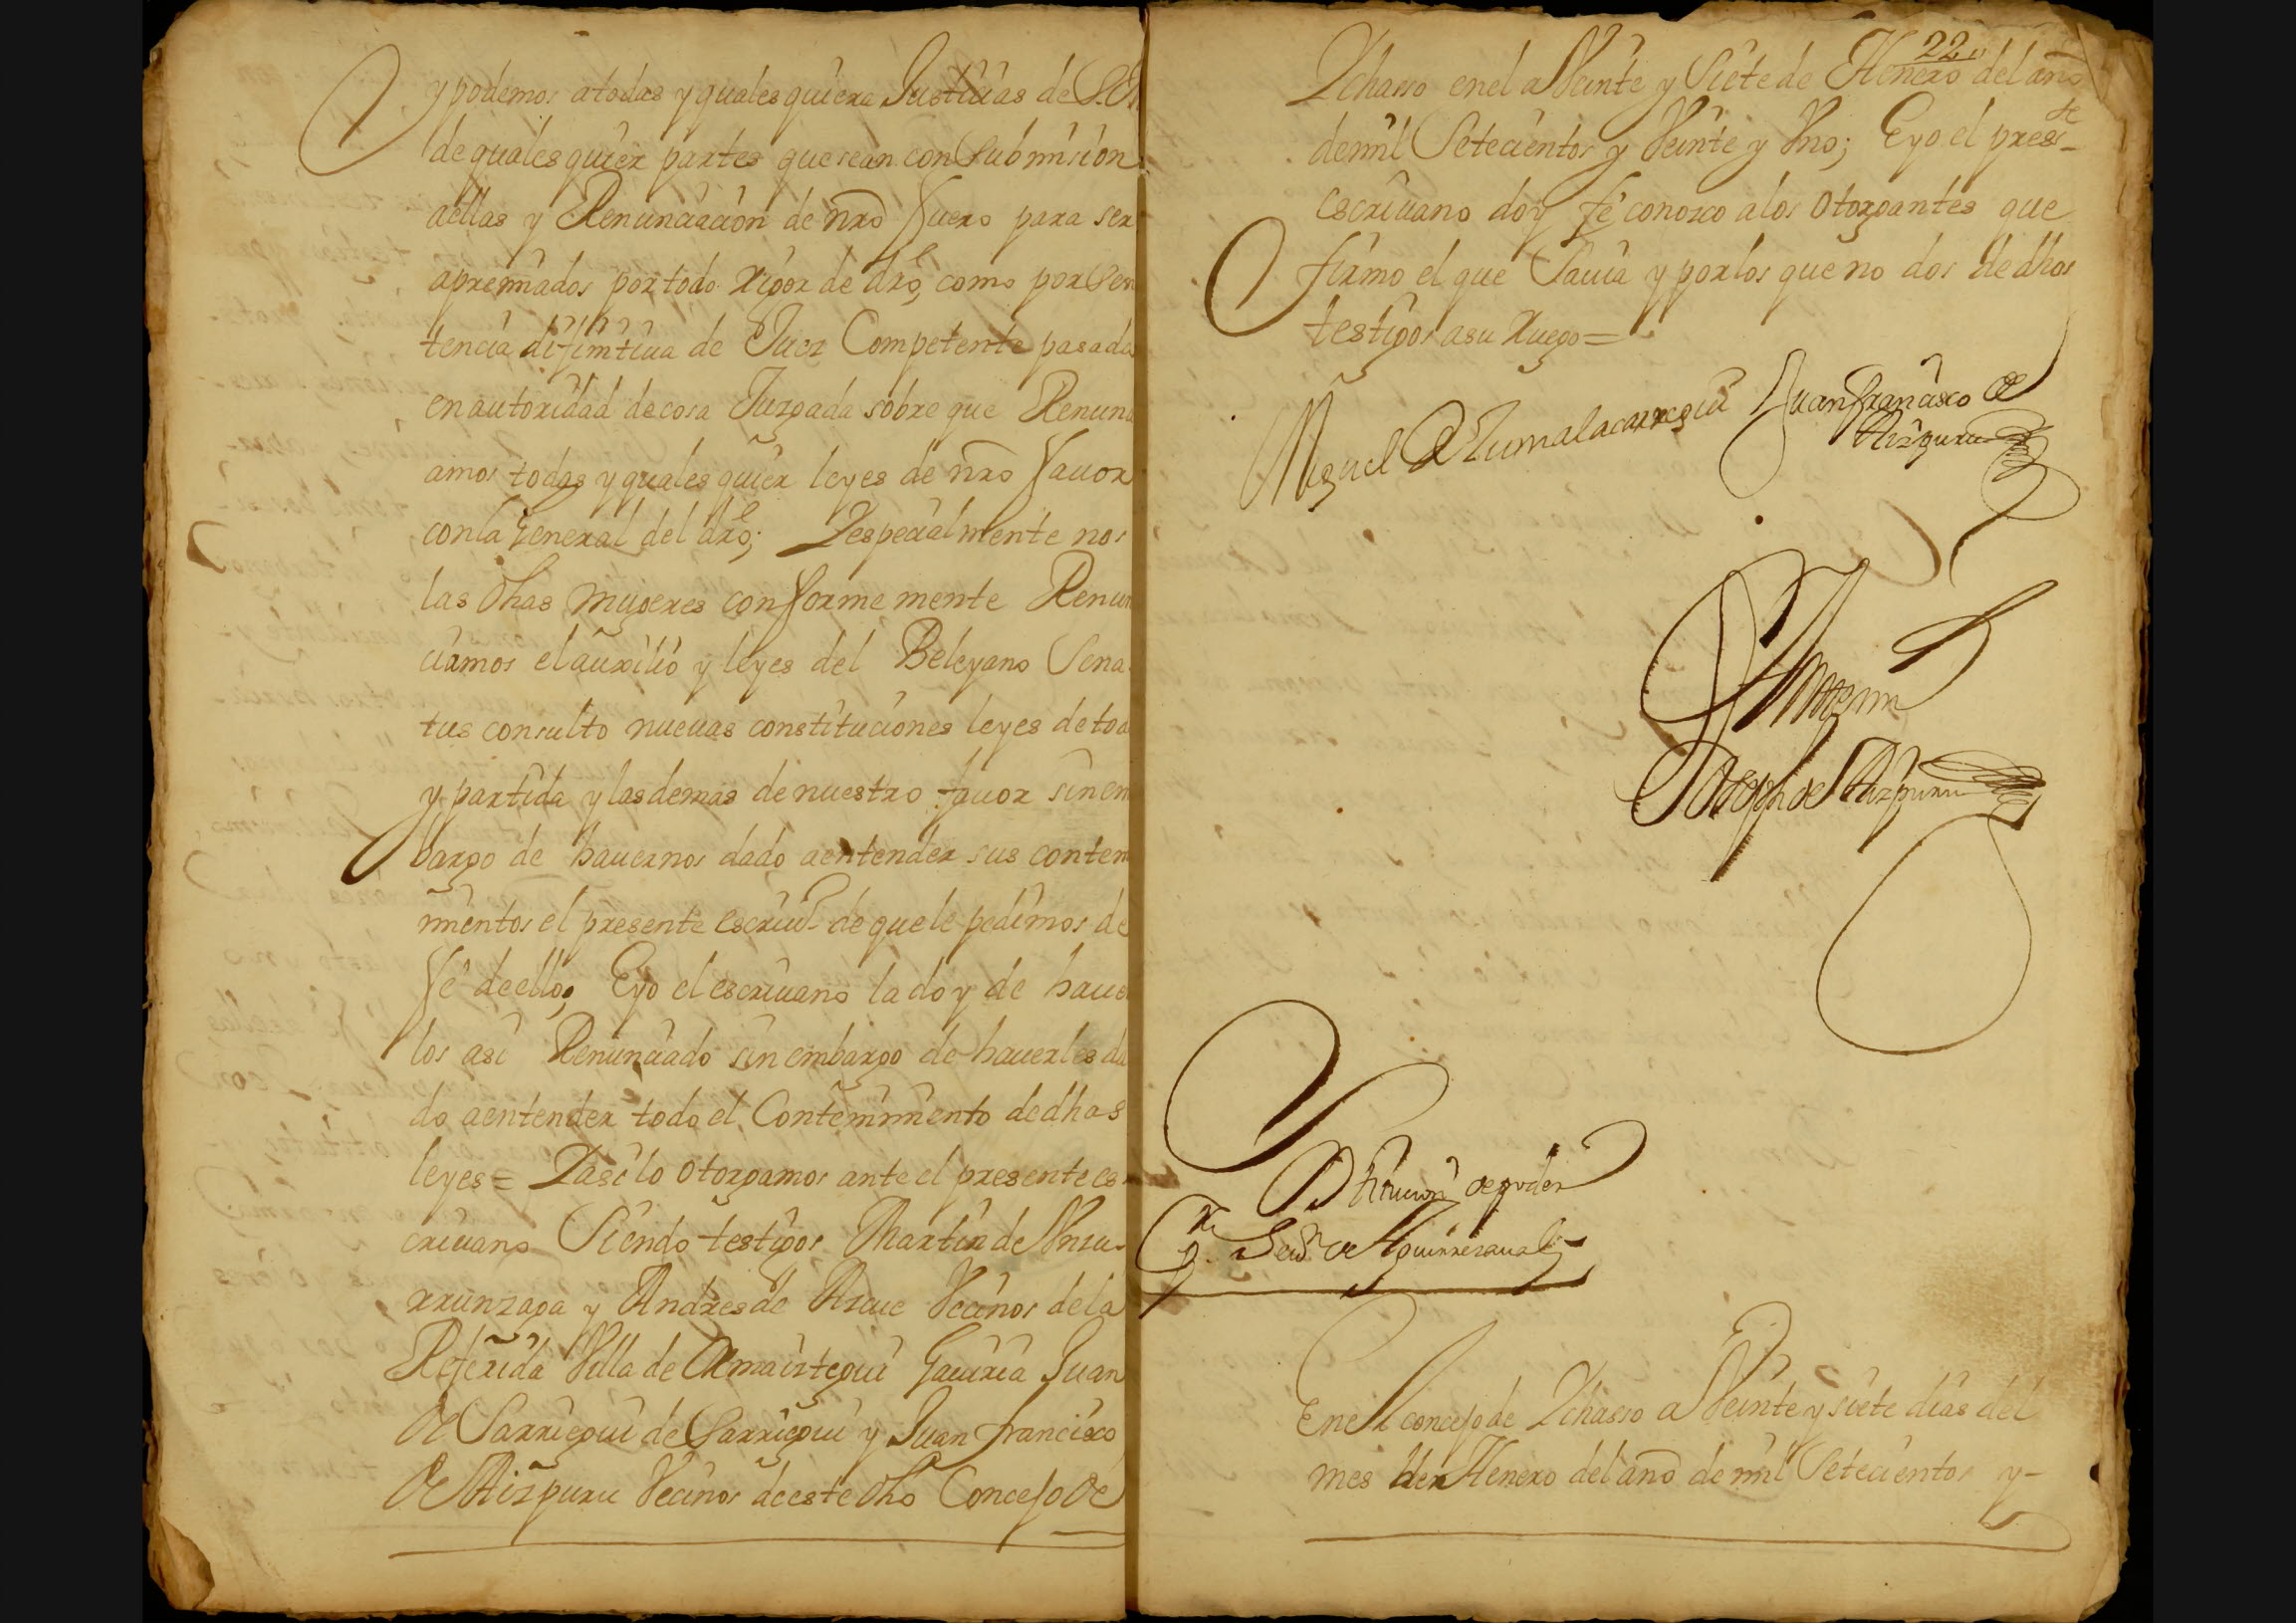 y podemos atodas y qualesquiera Justicias de S.M
de quales quier partes que sean con Submision
aellas y Renunciacion de nrõ fuero para ser
apremiados por todo rigor de drõ, como por Sen
tencia difinitiua de Juez Competente pasada
en autoridad de cosa Juzgada sobre que Renunci
amos todas y quales quier leyes de nrõ fauor
con la general del drõ; Y especialmente nos
las dhas mugeres conforme mente Renun
ciamos el auxilio y leyes del Beleyano Sena
tus consulto nueuas constituciones leyes de toro
y partida y las demas de nuestro fauor sin em
bargo de hauernos dado aentender sus conteni
mientos el presente escriu.º de que le pedimos de
fe de ello, E yo el escriuano la doy de hauer
los asi Renunciado sin embargo de hauerles da
do aentender todo el Contenimiento de dhas
leyes = Y asi lo otorgamos ante el presente es
criuano Siendo testigos Martin de Vnsu-
rrunzaga y Andres de Azcue Vecinos de la
Referida Villa de Ormaiztegui Gauiria Juan
de Sarriegui de Sarriegui y Juan francisco
de Aizpuru Vecinos de este dho Concejo de
22
Ychasso en el a Veinte y Siete de Henero del año
de mil Setecientos y Veinte y Vno; E yo el press.te
escriuano doy fe conozco alos otorgantes que
firmo el que Sauia y por los que no dos de dhos
testigos asu ruego =
Miguel de Zumalacarregui Juan francisco de
Aizpuru
Ante mi
Joseph de Aizpuru
de poder
En el concejo de Ychasso a Veinte y siete dias del
mes de Henero del año de mil Setecientos y-